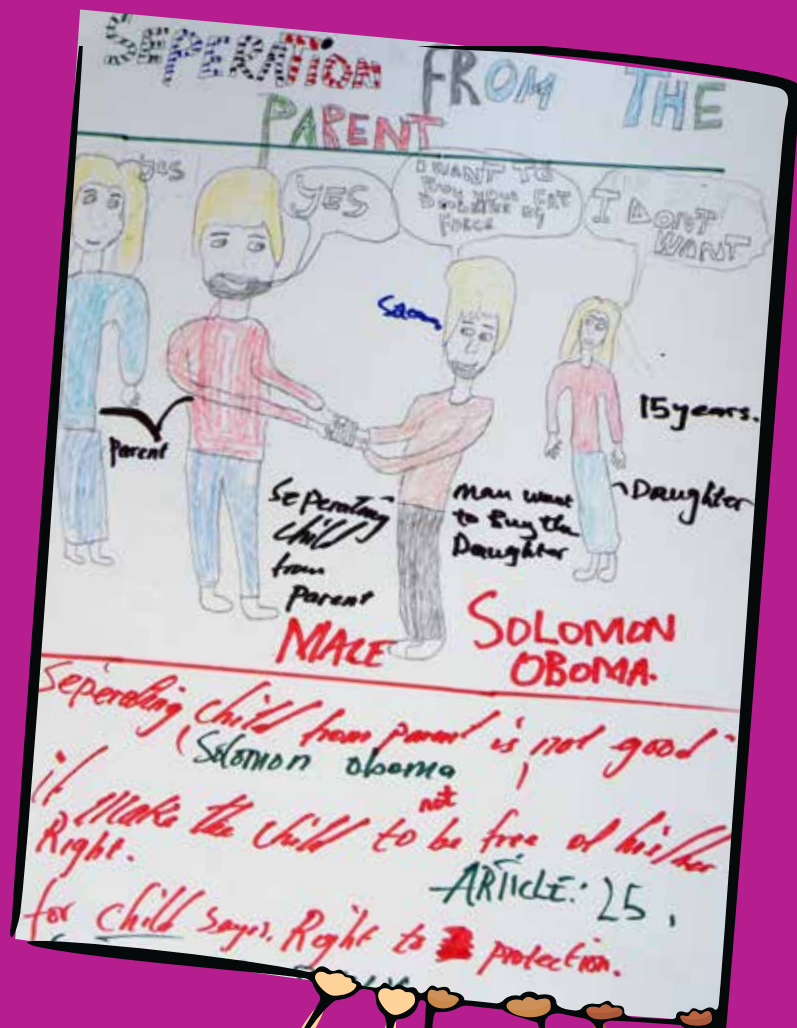 SEPERATION FROM THE
PARENT
yes
YES
I WANT TO
BY
FORCE
I DONT
WANT
15 years.
Parent
Daughter
Seperating
child
from
parent
man want
to buy the
Daughter
MALE
SOLOMON
OBOMA.
Seperating child from parent is not good
(Solomon oboma )
it make the child not to be free of his/her
Right.
ARTICLE: 25.
for child says. Right to protection.